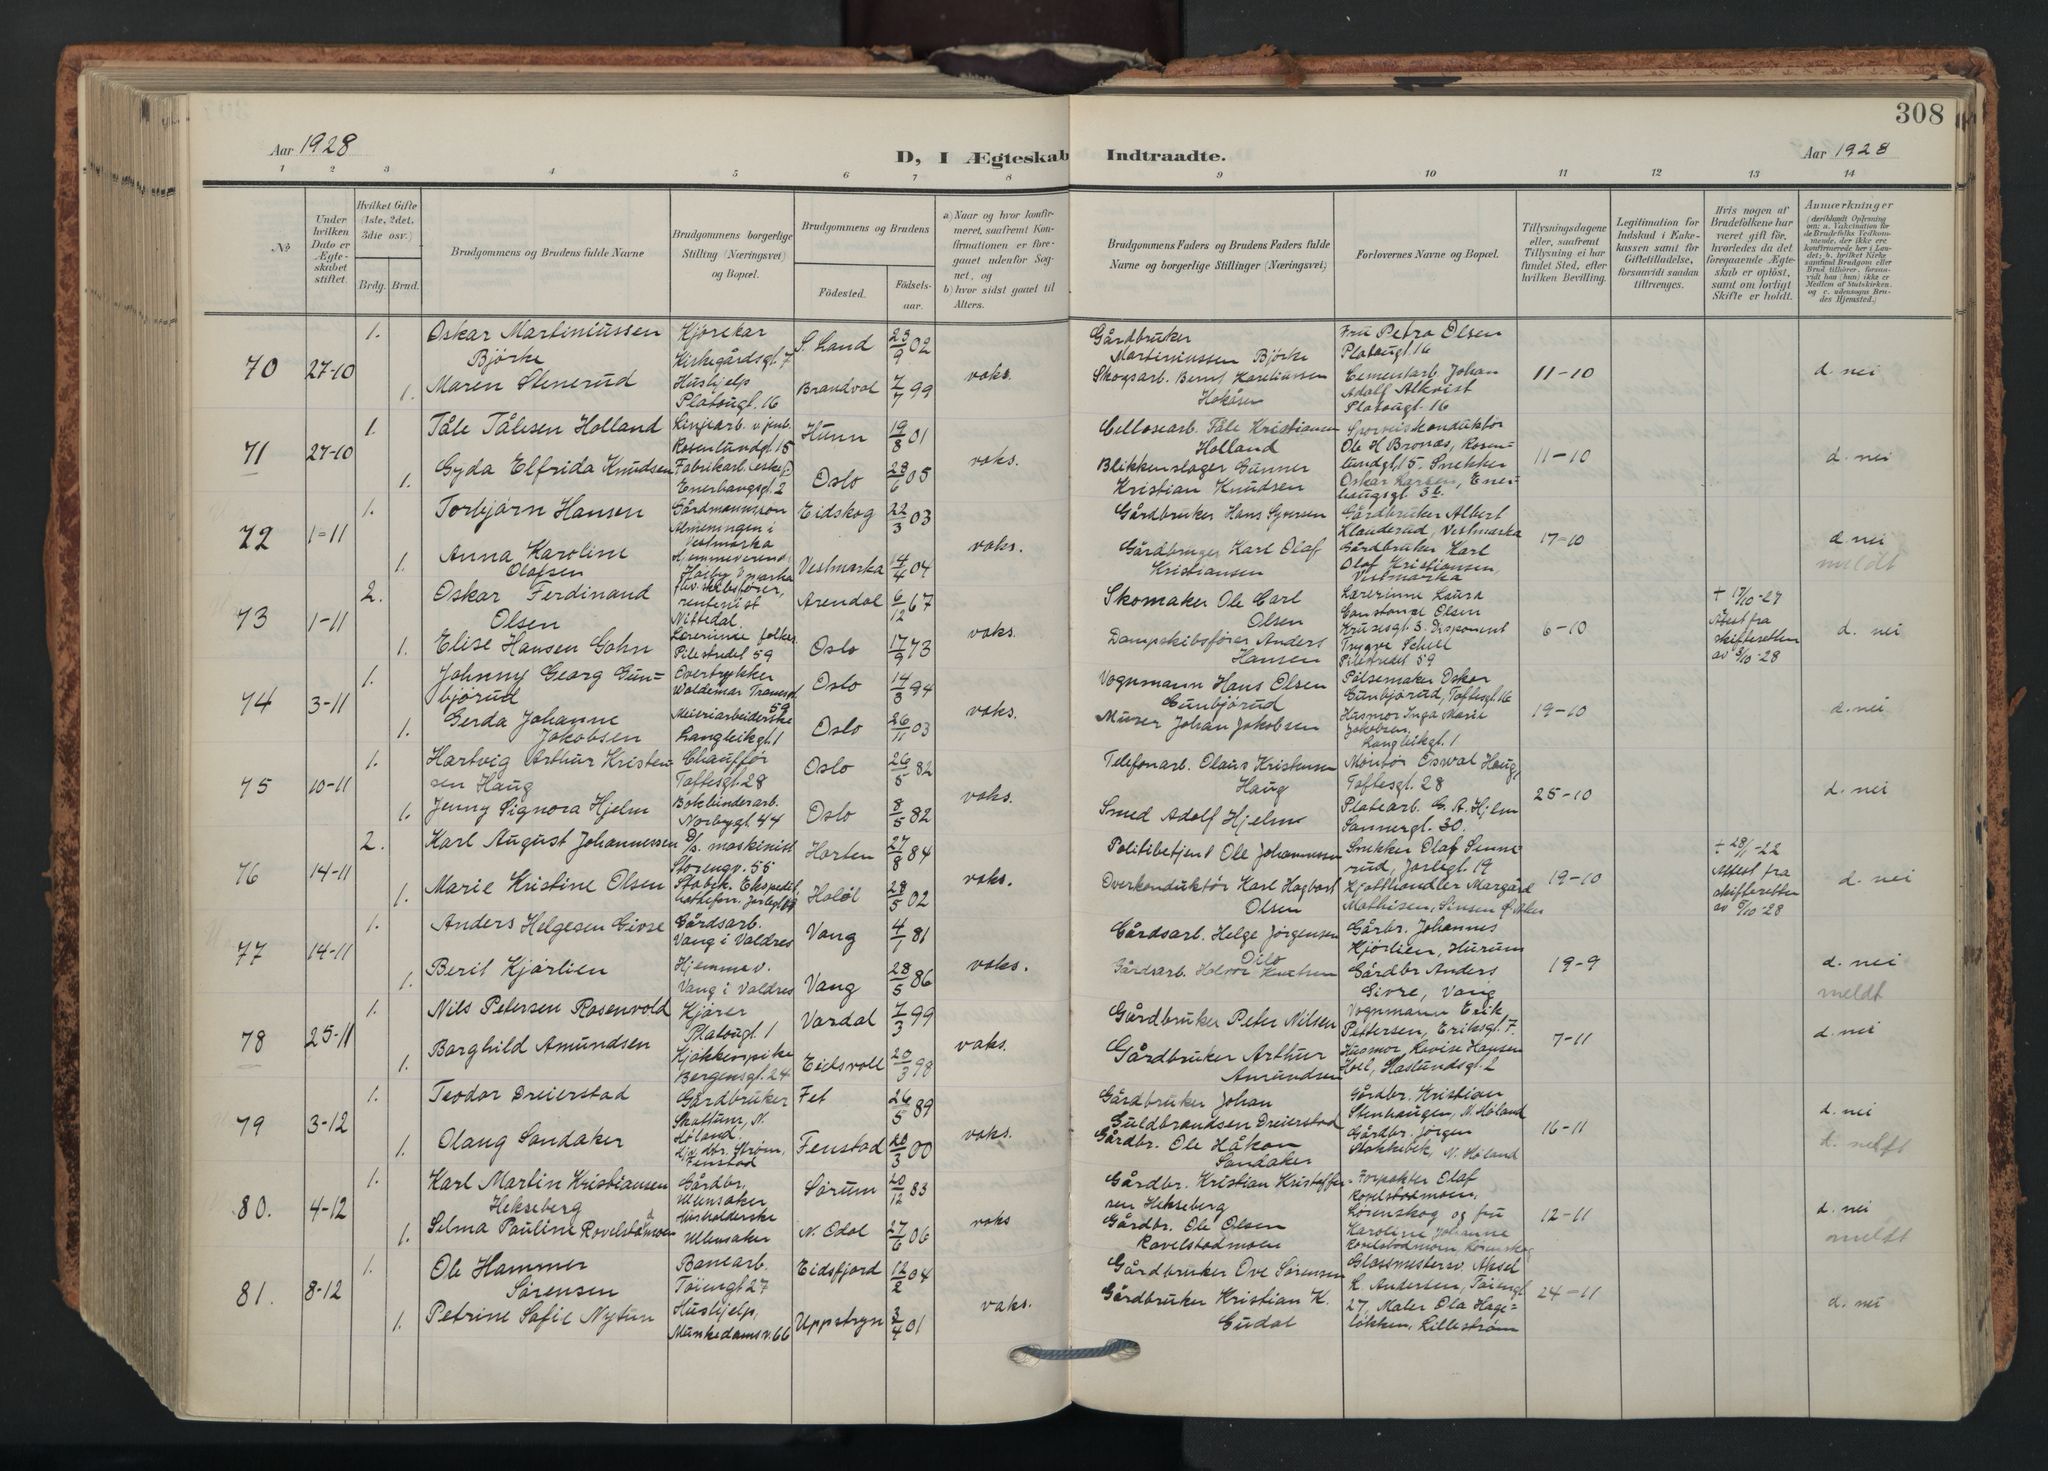 308
Aar 1928
D, I Ægteskab Indtraadte.
Aar 1928
1 2 3 4 5 6 7 8 9 10 11 12 13 14
№
Under hvilken Dato er Ægteskabet stiftet.
Hvilket Gifte (1ste, 2det, 3die osv.)
Brdg. Brud.
Brudgommens og Brudens fulde Navne
Brudgommens borgerlige Stilling (Næringsvei) og Bopæl.
Brudgommens og Brudens
Fødested. Fødselsaar.
a) Naar og hvor konfirmeret, saafremt Konfirmationen er foregaaet udenfor Sognet, og b) hvor sidst gaaet til Alters.
Brudgommens Faders og Brudens Faders fulde Navne og borgerlige Stillinger (Næringsvei)
Forlovernes Navne og Bopæl.
Tillysningsdagene eller, saafremt Tillysning ei har fundet Sted, efter hvilken Bevilling.
Legitimation for Indskud i Enkekassen samt for Giftetilladelse, forsaavidt saadan tiltrænges.
Hvis nogen af Brudefolkene har været gift før, hvorledes da det foregaaende Ægteskab er opløst, samt om lovligt Skifte er holdt.
Anmærkninger
70 27-10
1. Oskar Martiniussen Bjørke Kjørekar Kirkegårdsgt. 7 S. Land 23/9 02
Gårdbruker Martiniussen Bjørke Fru Petra Olsen Platougt. 16
1. Maren Stenerud Hushjelp Platougt. 16 Brandval 7/7 99 voks.
Skogsarb. Bernt Karitiansen Cementarb. Johan Adolf Alkvist Platougt. 16 11-10 d. nei
71 27-10
1. Tåle Tålesen Holland Linjearb. v. jernb. Rosenlundgt. 15 Hunn 19/8 01
Cellosearb. Tåle Kristiansen Holland Sporveiskonduktør Ole H Bronæs, Rosenlundgt. 15.
1. Gyda Elfrida Knudsen Fabrikarb. Enerhaugsgt. 2 Oslo 28/6 05 voks.
Blikkenslager Gunner Kristian Knudsen Snekker Oskar Larsen, Enerhaugsgt. 36. 11-10 d. nei
72 1-11
1. Torbjørn Hansen Gårdmannssøn Almeningen i Vestmarka Eidskog 22/3 03
Gårdbruker Hans Syversen Gårdbruker Albert Klanderud, Vestmarka
1. Anna Karoline Olafsen Hjemmeværende Vestmarka 14/4 04 voks.
Gårdbruger Karl Olaf Kristiansen Gårdbruker Karl Olaf Kristiansen, Vestmarka 17-10 d. nei meldt
73 1-11
2. Oskar Ferdinand Olsen fhv. skibsfører, rentenist Nittedal. Arendal 6/12 67
Skomaker Ole Carl Olsen Lærerinne Laura Constance Olsen Krusesgt. 3.
1. Elise Hansen Gohn Lærerinne Pilestredet 59 Oslo 17/9 73 voks.
Dampskibsfører Anders Hansen Disponent Trygve Schell Pilestredet 59 6-10
† 17/10-27 Attest fra skifteretten av 3/10-28 d. nei
74 3-11
1. Johnny Georg Gunbjørud Overtrykker Waldemar Thranesgt. 59 Oslo 14/3 94
Vognmann Hans Olsen Gunbjørud Pølsemaker Oskar Gunbjørud, Toftesgt. 16
1. Gerda Johanne Jakobsen Meieriarbeiderske Langleikgt. 1 Oslo 26/11 03 voks.
Murer Johan Jakobsen Husmor Inga Marie Jakobsen, Langleikgt. 1 19-10 d. nei
75 10-11
1. Hartvig Arthur Kristensen Haug Chauffør Toftesgt. 28 Oslo 26/5 82
Telefonarb. Olaus Kristensen Haug Montør Osvald Haug, Toftesgt. 28
1. Jenny Signora Hjelm Bokbinderarb. Norbygt. 44 Oslo 8/5 82 voks.
Smed Adolf Hjelm Platearb. G. A. Hjelm Sannergt. 30. 25-10 d. nei
76 14-11
2. Karl August Johannessen D/s. maskinist Storengv. 55 Stabek. Horten 27/8 84
Politibetjent Ole Johannessen Snekker Olaf Sennerud, Jarlegt. 19
1. Marie Kristine Olsen Ekspedit. Holøl 28/5 02 voks.
Overkonduktør Karl Hagbart Olsen Kjøtthandler Margård Mathisen, Sinsen Ø. Aker 19-10
† 28/1-22 Attest fra skifteretten av 5/10-28 d. nei
77 14-11
1. Anders Helgesen Givre Gårdsarb. Vang i Valdres Vang 4/1 81
Gårdsarb. Helge Jørgensen Gårbr. Johannes Kjørlien, Hurum
1. Berit Kjørlien Hjemmev. Vang i Valdres Vang 28/5 86 voks.
Gårdsarb. Halvor Knutsen Gårdbr Anders Givre, Vang 19-9 d. nei meldt
78 25-11
1. Nils Petersen Rosenvold Kjører Platougt. 1 Vardal 7/3 99
Gårdbruker Peter Nilsen Vognmann Erik Pettersen, Eriksgt. 7.
1. Borghild Amundsen Kjøkkenpike Bergensgt. 24 Eidsvoll 20/3 98 voks.
Gårdbruker Arthur Amundsen Husmor Lovise Hansen Hoel, Haslundsgt. 2 7-11 d. nei
79 3-12
1. Teodor Dreierstad Gårdbruker Skattum, N. Høland. Fet 26/5 89
Gårdbruker Johan Guldbrandsen Dreierstad Gårdbr. Kristian Stenhaugen, N. Høland
1. Olaug Sandaker Fenstad Fenstad 20/3 00 voks.
Gårdbr. Ole Håkon Sandaker Gårdbr. Jørgen Stokkebek, N. Høland 16-11 d. nei d. meldt
80. 4-12
1. Karl Martin Kristiansen Hekseberg Gårdbr. Ullensaker Sørum 20/12 83
Gårdbr. Kristian Kristoffersen Hekseberg Forpakter Olaf Rovelstadmoen, Lørenskog og fru
1. Selma Pauline Rovelstadmoen Husholderske Ullensaker N. Odal 27/6 06 voks
Gårdbr. Ole Olsen Rovelstadmoen Karoline Johanne Rovelstadmoen, Lørenskog 12-11 d. nei meldt
81. 8-12
1. Ole Hammer Sørensen Banearb. Tøiengt 27 Eidsfjord 12/2 04
Gårdbruker Ove Sørensen Glassmestersv. Aksel L. Andersen, Tøiengt 27,
1. Petrine Sofie Nytun Hushjelp, Munkedamsv. 66 Uppstryn 3/4 01 voks.
Gårdbruker Kristian K. Gudal Maler Ola Hageløkken, Lillestrøm 24-11 d. nei